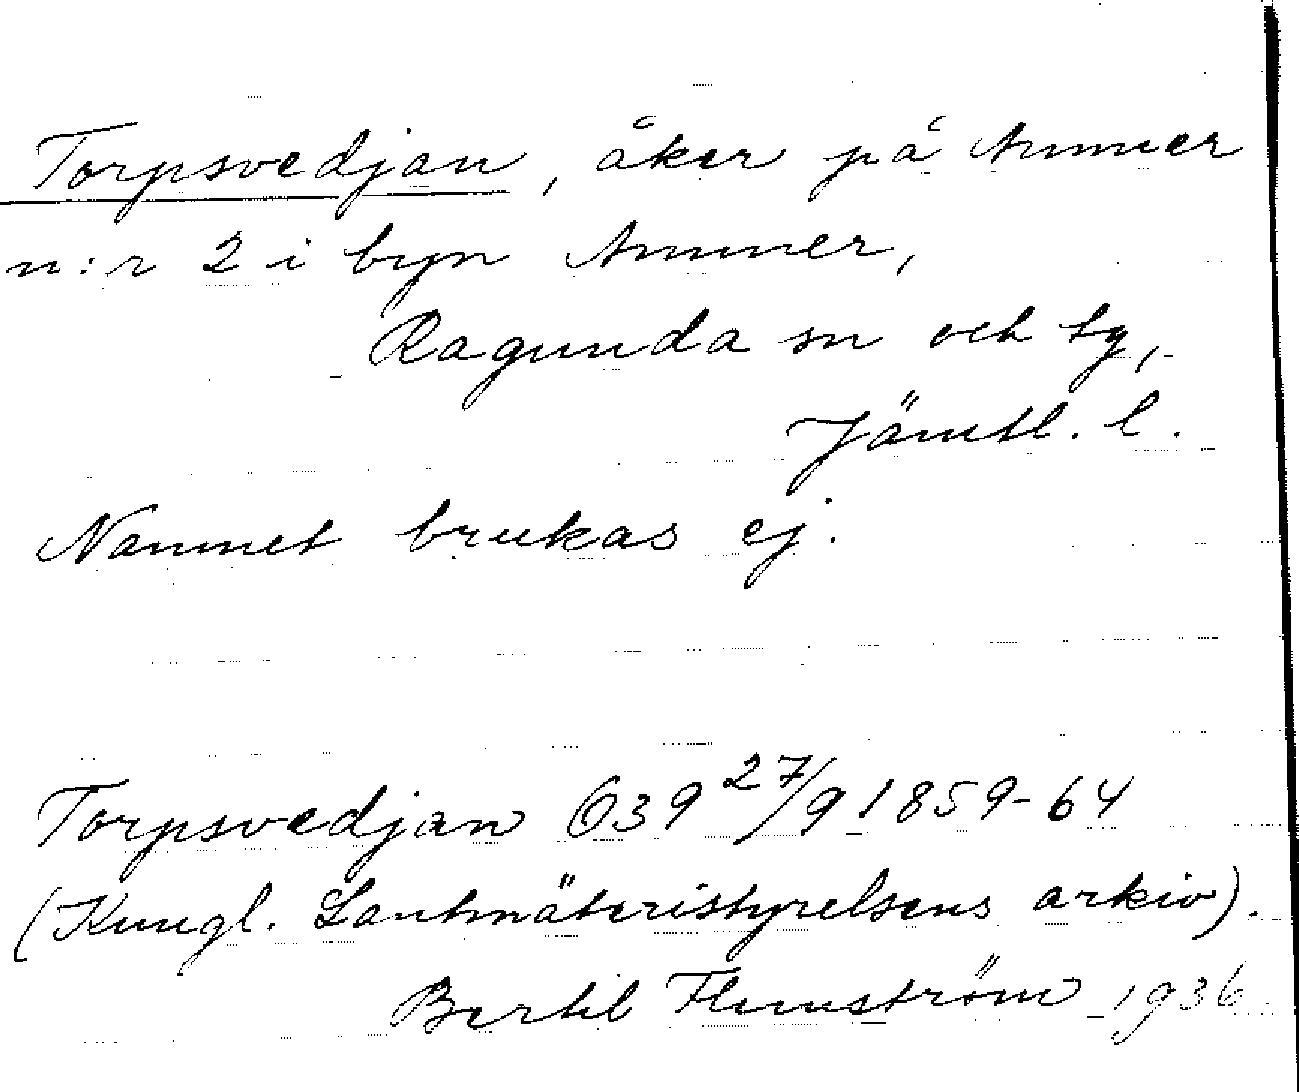 Torpsvedjan, åker på Ammer
n:r 2 i byn Ammer,
Ragunda sn och tg,
Jämtl. l.
Namnet brukas ej.
Torpsvedjan O39 27/9 1859-64
(Kungl. Lantmäteristyrelsens arkiv).
Bertil Flemström 1936